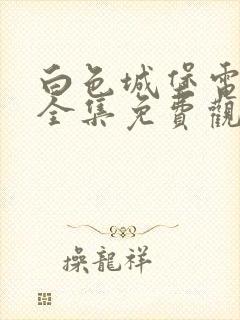 白色城堡電
全集免費觀
操龍祥